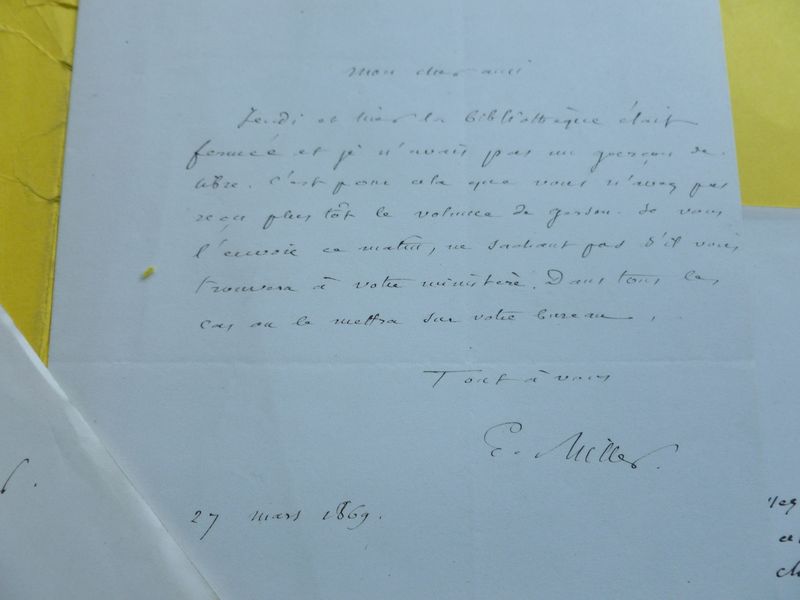 mon cher ami
Jeudi et hier la bibliothèque était
fermée et je n'avais pas un garçon de
libre. C'est pour cela que vous n'avez pas
reçu plus tôt le volume de Gerson. Je vous
l'envoie ce matin, ne sachant pas s'il vous
trouvera à votre ministère. Dans tous les
cas on le mettra sur votre bureau.
Tout à vous
E. Miller.
27 mars 1869.